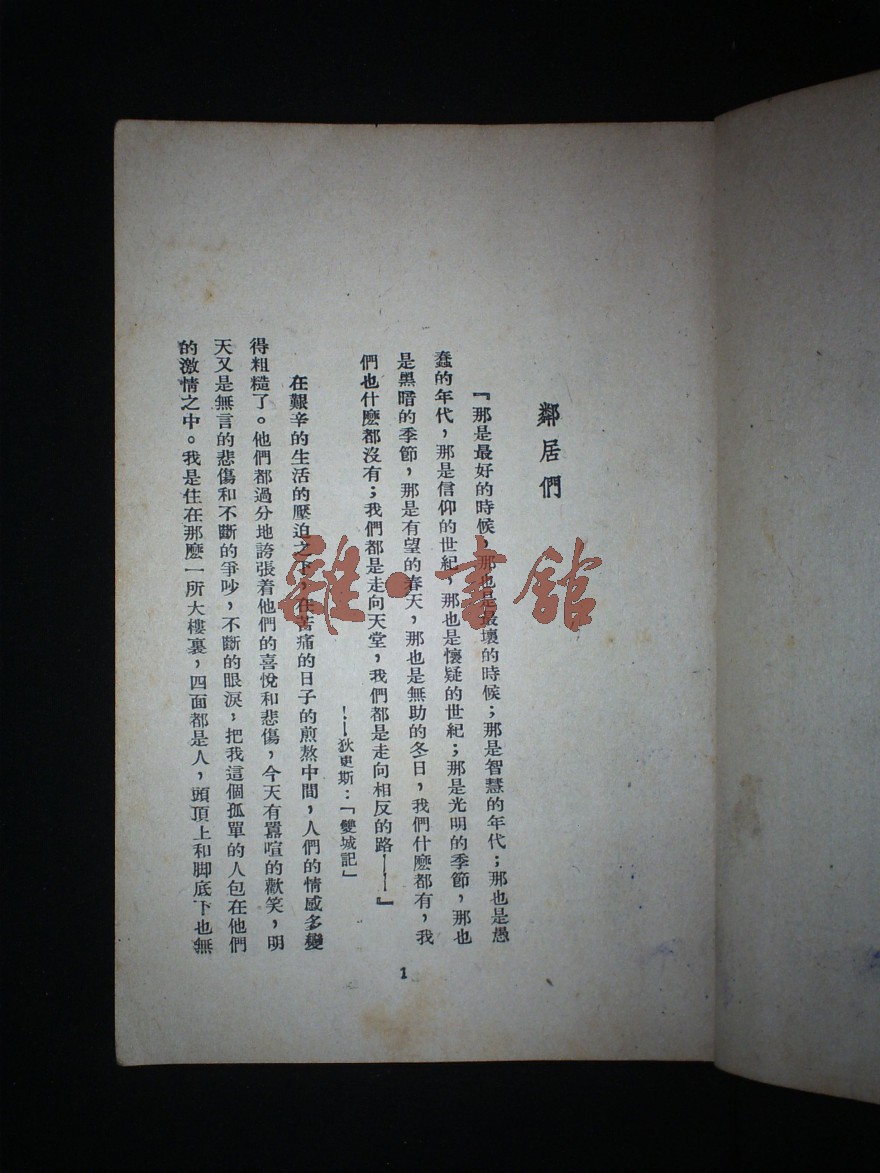 鄰居們
『那是最好的時候，那也是最壞的時候；那是智慧的年代；那也是愚
蠢的年代，那是信仰的世紀，那也是懷疑的世紀；那是光明的季節，那也
是黑暗的季節，那是有望的春天，那也是無助的冬日，我們什麽都有，我
們也什麽都沒有；我們都是走向天堂，我們都是走向相反的路——』
——狄更斯：「雙城記」
在艱辛的生活的壓迫之下，在苦痛的日子的煎熬中間，人們的情感多變
得粗糙了。他們都過分地誇張着他們的喜悅和悲傷，今天有囂喧的歡笑，明
天又是無言的悲傷和不斷的爭吵，不斷的眼淚，把我這個孤單的人包在他們
的激情之中。我是住在那麽一所大樓裏，四面都是人，頭頂上和脚底下也無
1
雜·書館